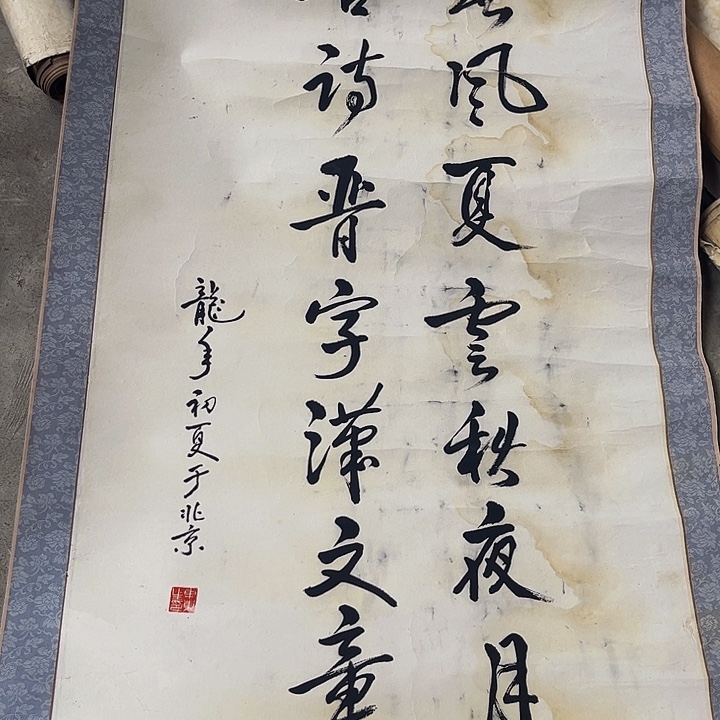 风夏雲秋夜月
诗晋字漢文章
龍年初夏于北京